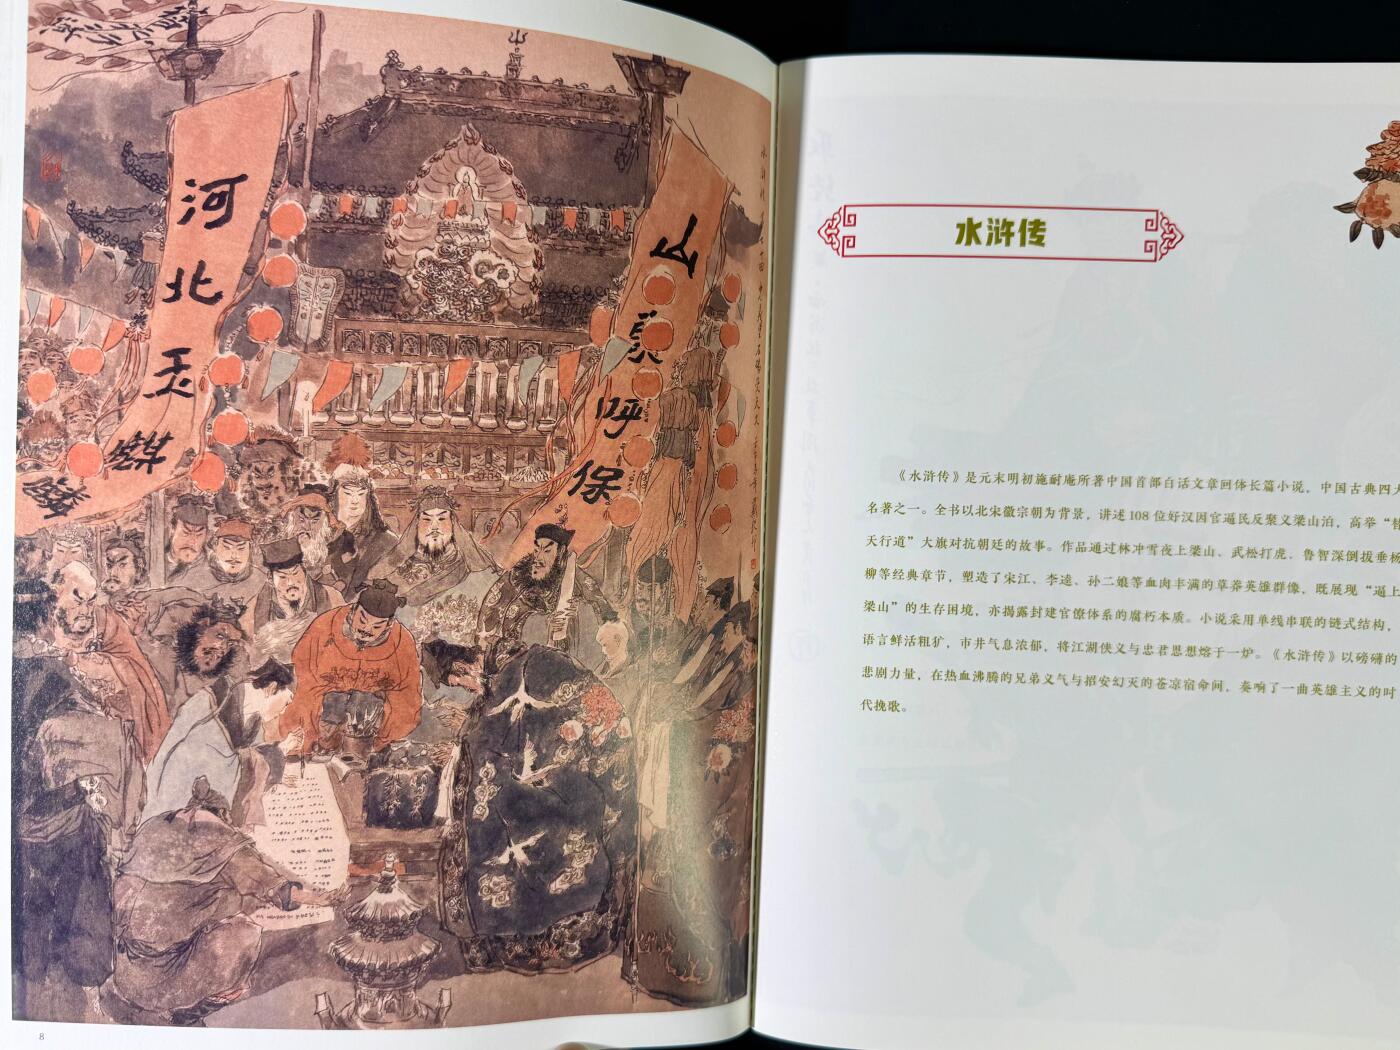 河北玉麒麟
山东呼保
水浒传
《水浒传》是元末明初施耐庵所著中国首部白话文章回体长篇小说，中国古典四大
名著之一。全书以北宋徽宗朝为背景，讲述 108 位好汉因官逼民反聚义梁山泊，高举“替
天行道”大旗对抗朝廷的故事。作品通过林冲雪夜上梁山、武松打虎、鲁智深倒拔垂杨
柳等经典章节，塑造了宋江、李逵、孙二娘等血肉丰满的草莽英雄群像，既展现“逼上
梁山”的生存困境，亦揭露封建官僚体系的腐朽本质。小说采用单线串联的链式结构，
语言鲜活粗犷，市井气息浓郁，将江湖侠义与忠君思想熔于一炉。《水浒传》以磅礴的
悲剧力量，在热血沸腾的兄弟义气与招安幻灭的苍凉宿命间，奏响了一曲英雄主义的时
代挽歌。
8